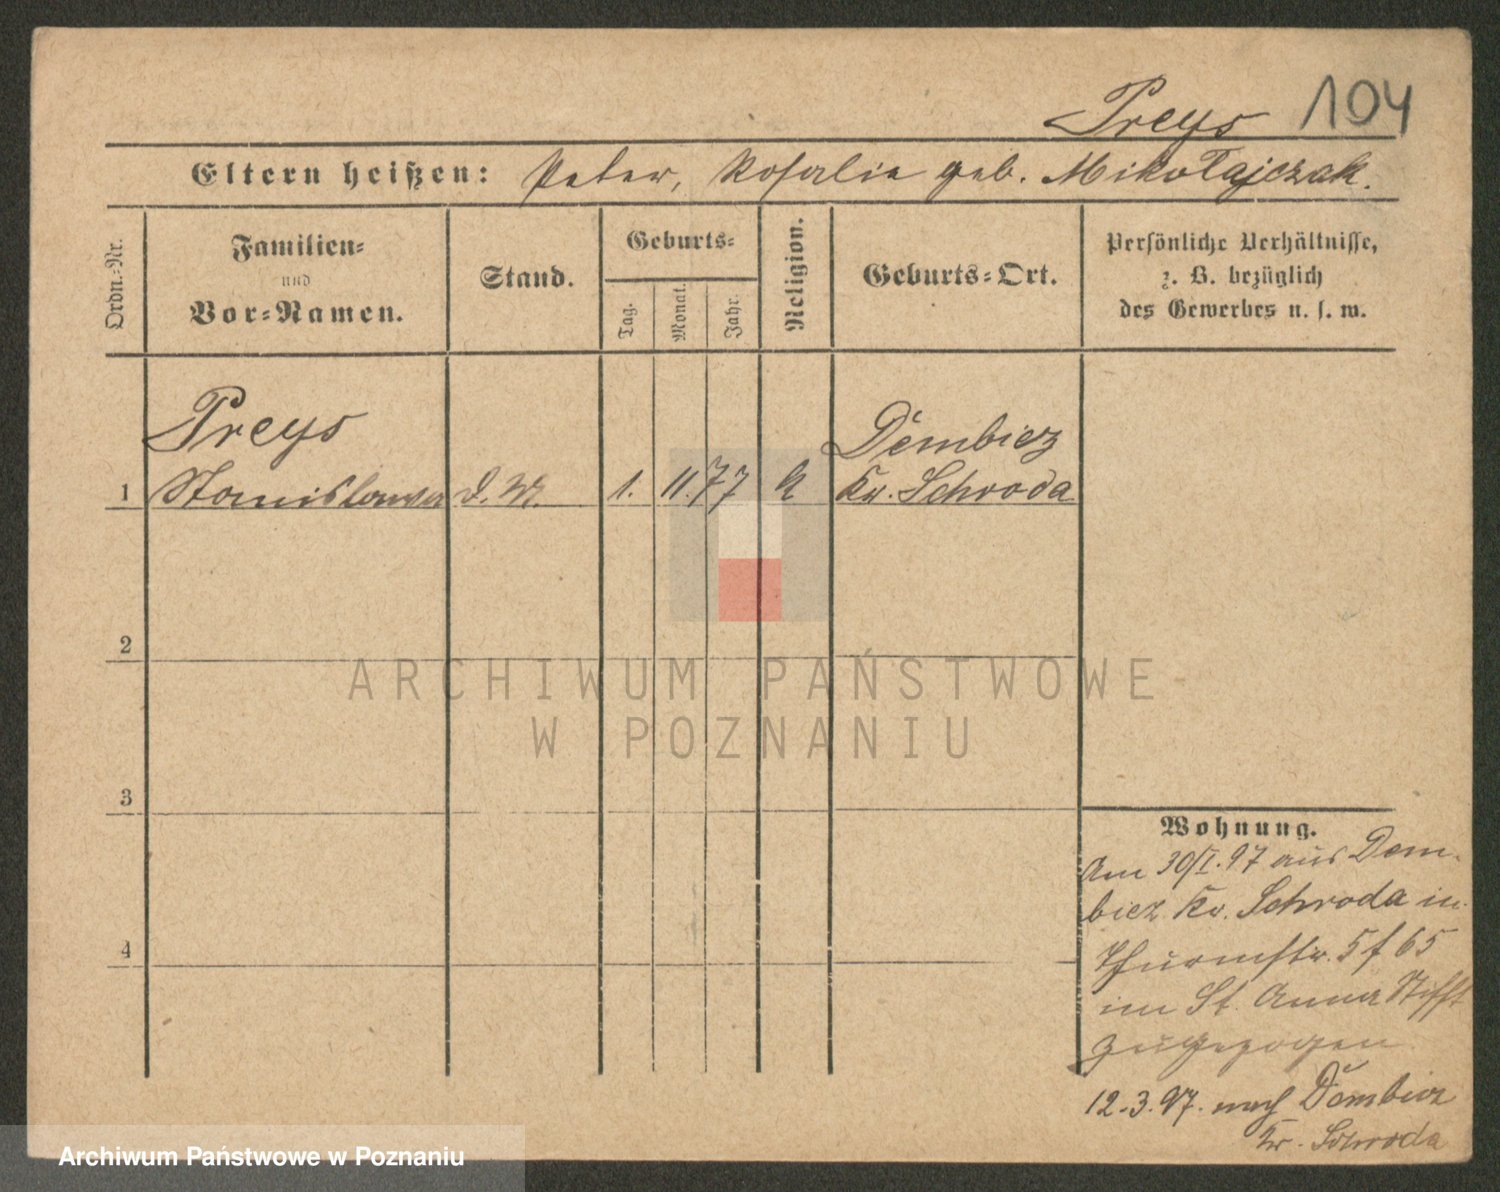 Preys 104
Eltern heißen: Peter, Rosalie geb. Mikołajczak.
Ordn.-Nr.
Familien-
und
Vor-Namen.
Stand.
Geburts-
Tag.
Monat.
Jahr.
Religion.
Geburts-Ort.
Persönliche Verhältnisse,
z. B. bezüglich
des Gewerbes u. s. w.
Preys
1 Stanislawa d. M. 1. 11. 77 k
Dembicz
Kr. Schroda
2
3
4
Wohnung.
Am 30/I. 97 aus Dem-
bicz Kr. Schroda in
Thurmstr. 5 f 65
im St. Anna Stift
zugezogen
12.3.97. nach Dembicz
Kr. Schroda
ARCHIWUM PAŃSTWOWE
W POZNANIU
Archiwum Państwowe w Poznaniu